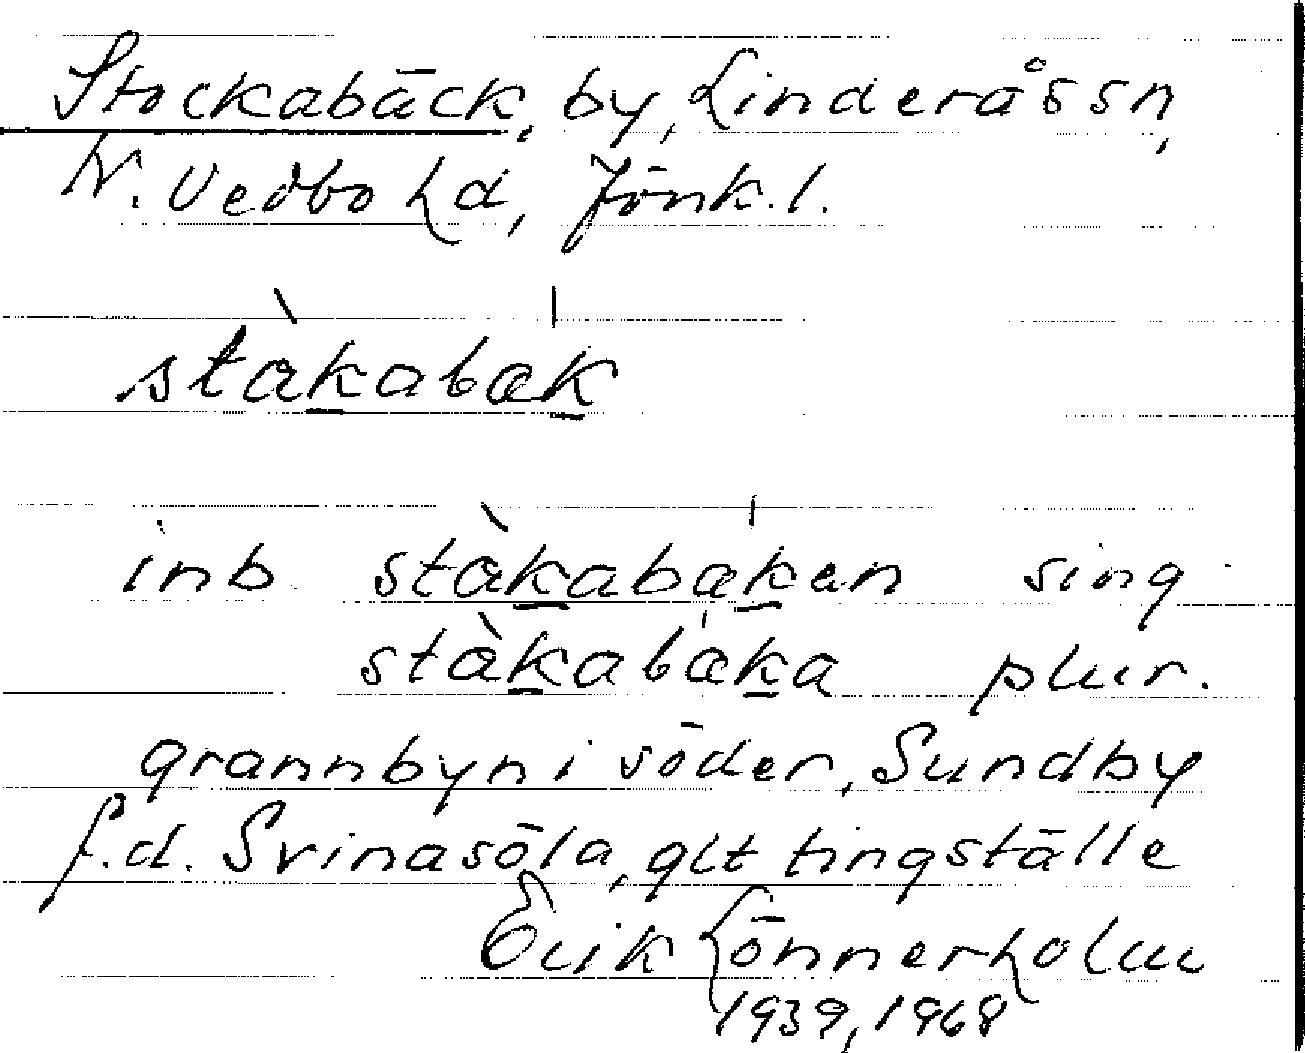 Stockabäck, by, Linderås sn,
N. Vedbo hd, Jönk. l.
stàkabæk
inb. stàkabækan sing.
stàkabæka plur.
grannbyn i söder, Sundby
f.d. Svinasöla, glt tingställe
Erik Lönnerholm
1939, 1968